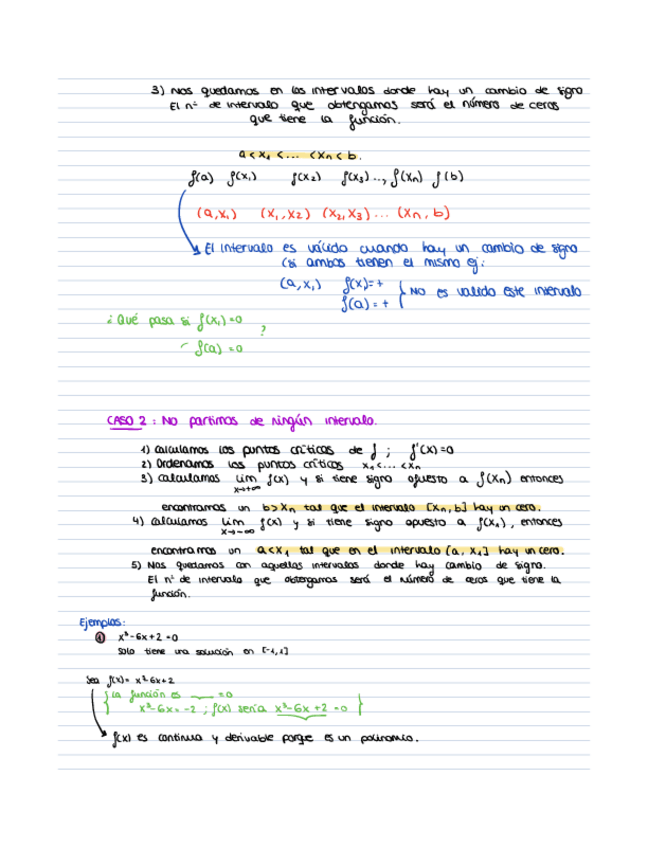 3) Nos quedamos en los intervalos donde hay un cambio de signo
El nº de intervalo que obtengamos será el número de ceros
que tiene la función.
a < x₁ < ... < xn < b.
f(a) f(x₁) f(x₂) f(x₃) ..., f(xn) f(b)
(a, x₁) (x₁, x₂) (x₂, x₃) ... (xn, b)
El intervalo es válido cuando hay un cambio de signo
(si ambos tienen el mismo ej:
(a, x₁) f(x₁) = + } No es valido este intervalo
f(a) = +
¿Qué pasa si f(x₁) = 0
?
f(a) = 0
CASO 2: No partimos de ningún intervalo.
1) Calculamos los puntos críticos de f ; f'(x) = 0
2) Ordenamos los puntos críticos x₁ < ... < xn
3) Calculamos lim x→+∞ f(x) y si tiene signo opuesto a f(xn) entonces
encontramos un b > xn tal que el intervalo [xn, b] hay un cero.
4) Calculamos lim x→-∞ f(x) y si tiene signo opuesto a f(x₁), entonces
encontramos un a < x₁ tal que en el intervalo [a, x₁] hay un cero.
5) Nos quedamos con aquellos intervalos donde hay cambio de signo.
El nº de intervalo que obtengamos será el número de ceros que tiene la
función.
Ejemplos:
① x³ - 6x + 2 = 0
Solo tiene una solución en [-1, 1]
Sea f(x) = x³ - 6x + 2
{ La función es ___ = 0
x³ - 6x = -2 ; f(x) sería x³ - 6x + 2 = 0 }
f(x) es continua y derivable porque es un polinomio.